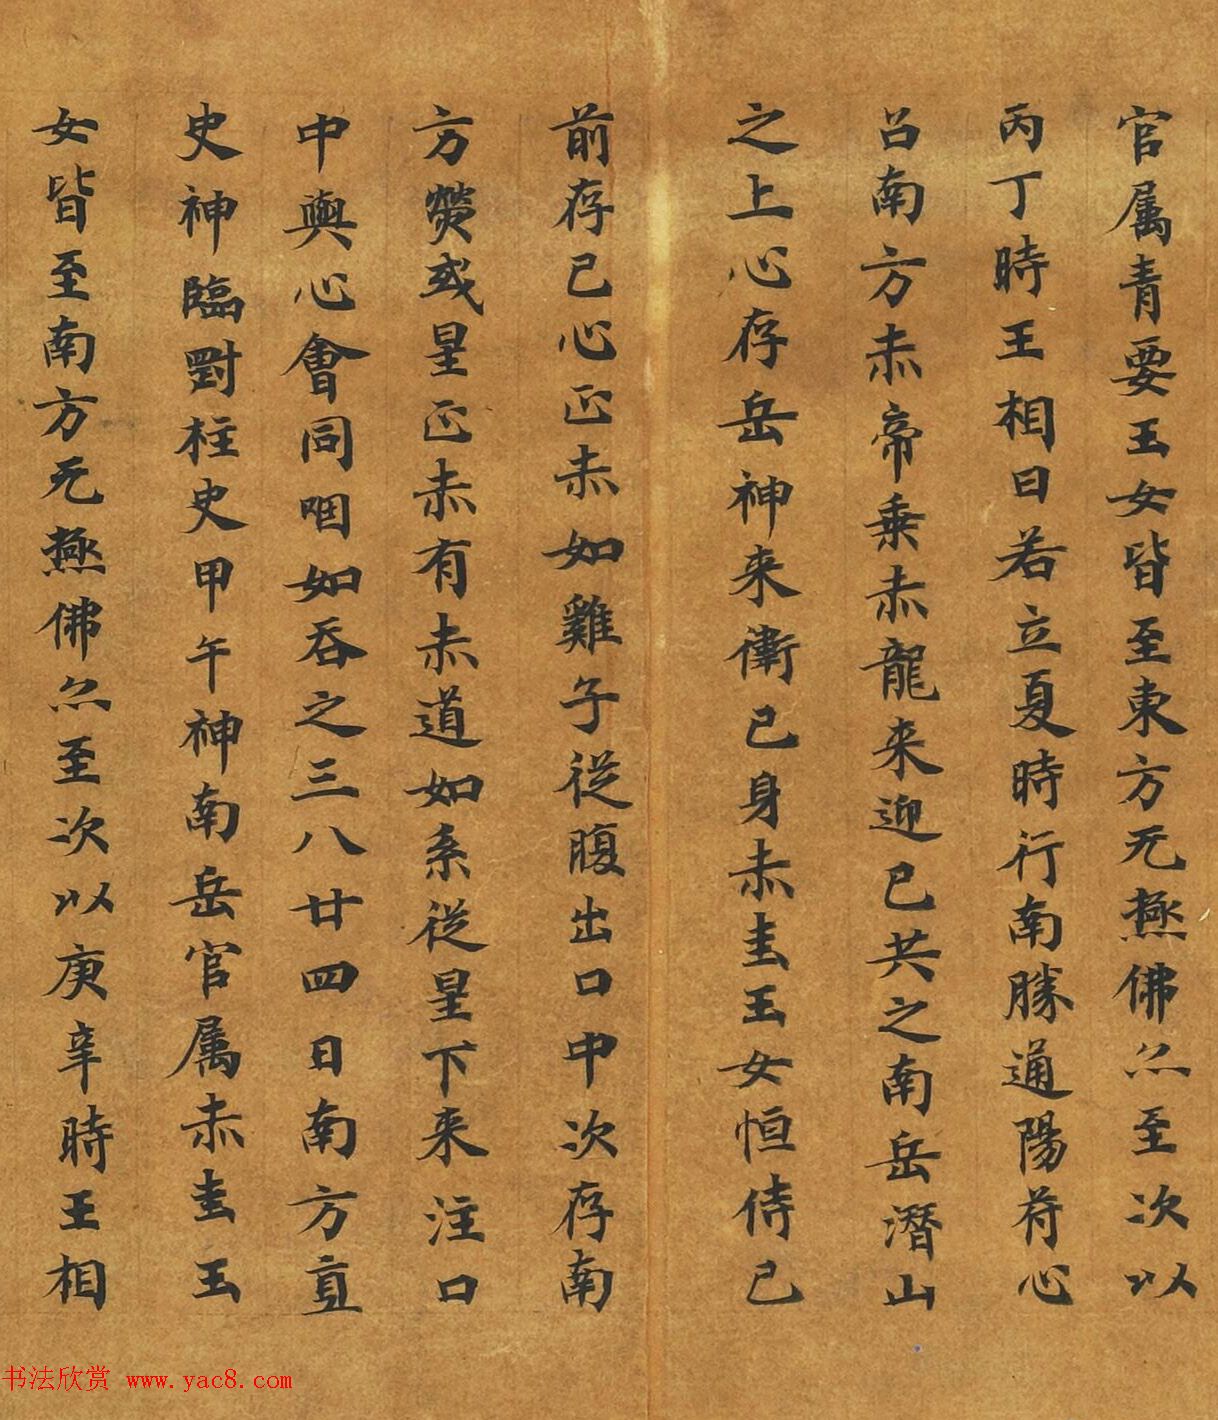 官属青要玉女皆至東方无極佛亦至次以
丙丁時王相日若立夏時行南勝通陽符心
召南方赤帝乗赤龍来迎己共之南岳潛山
之上心存岳神来衛己身赤圭玉女恒侍己
前存己心正赤如雞子從腹出口中次存南
方熒或星正赤有赤道如系從星下来注口
中與心會同咽如吞之三八廿四日南方直
史神臨對柱史甲午神南岳官属赤圭玉
女皆至南方无極佛亦至次以庚辛時王相
书法欣赏 www.yac8.com